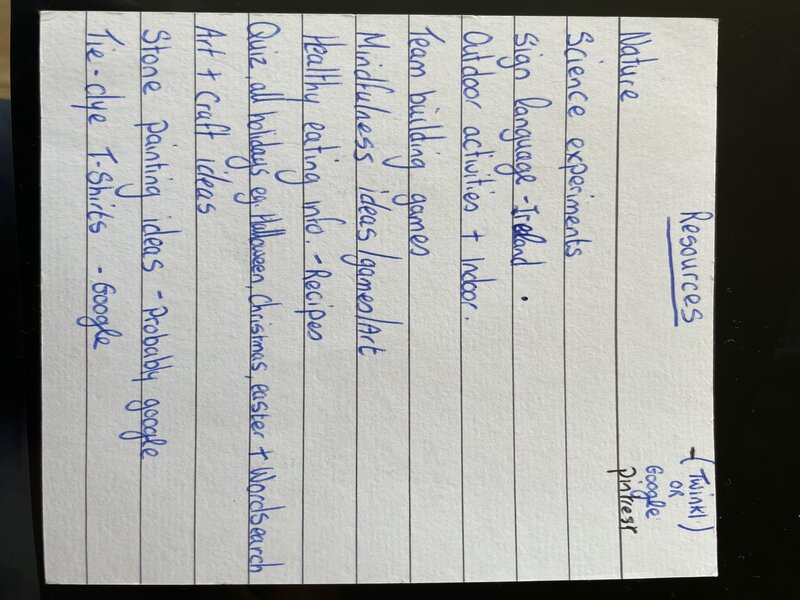 Resources
-(Twinkl)
OR
Google
pintresr
Nature
Science experiments
Sign language - Ireland.
Outdoor activities + Indoor.
Team building games
Mindfulness ideas/games/Art
Healthy eating info. - Recipes
Quiz, all holidays eg. Halloween, Christmas, easter + Wordsearch
Art + Craft ideas
Stone painting ideas - Probably google
Tie-dye T-Shirts - Google